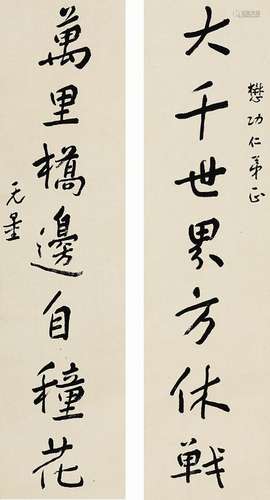 懋功仁弟正
大千世界方休戰
萬里橋邊自穜花
无量